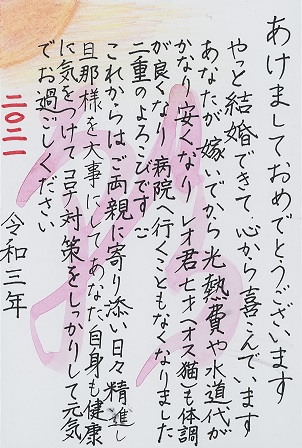 あけましておめでとうございます
やっと結婚できて、心から喜こんでいます
あなたが嫁いでから光熱費や水道代が
かなり安くなり レオ君七才(オス猫)も体調
が良くなり 病院へ行くこともなくなりました
二重のよろこびです
これからはご両親に寄り添い日々精進し
旦那様を大事にして あなた自身も健康
に気をつけてコロナ対策をしっかりして元気
でお過ごしください
二〇二一 令和三年